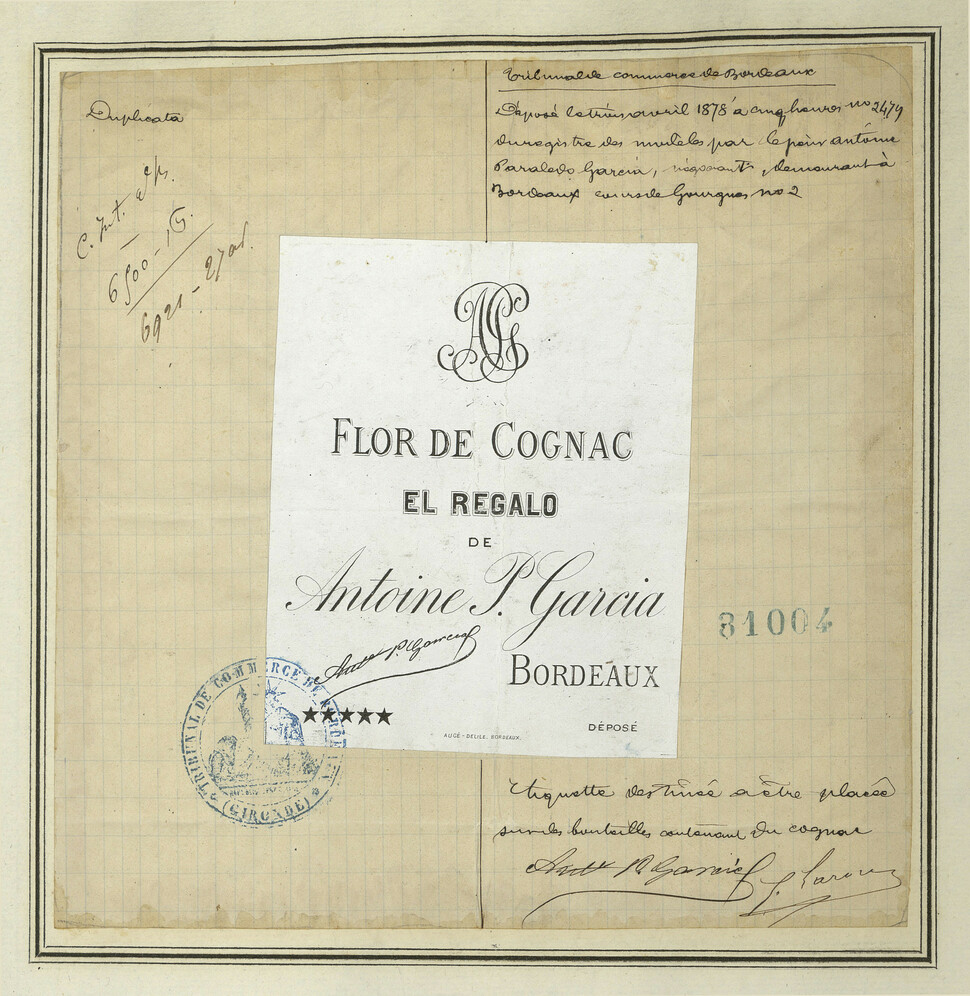 Duplicata
Tribunal de commerce de Bordeaux
Déposé le trois avril 1878 à cinq heures no 2479
du registre des modèles par le sieur Antoine
Paraledo Garcia, négociant, demeurant à
Bordeaux cours de Gourgues no 2
C. Int.
6500 - 15.
6921 - 27
APG
FLOR DE COGNAC
EL REGALO
DE
Antoine P. Garcia
Ant P. Garcia
BORDEAUX
★★★★★
DÉPOSÉ
AUGÉ-DELILE, BORDEAUX.
81004
TRIBUNAL DE COMMERCE DE BORDEAUX
(GIRONDE)
Etiquette destinée a être placée
sur les bouteilles contenant du cognac
Ant P. Garcia